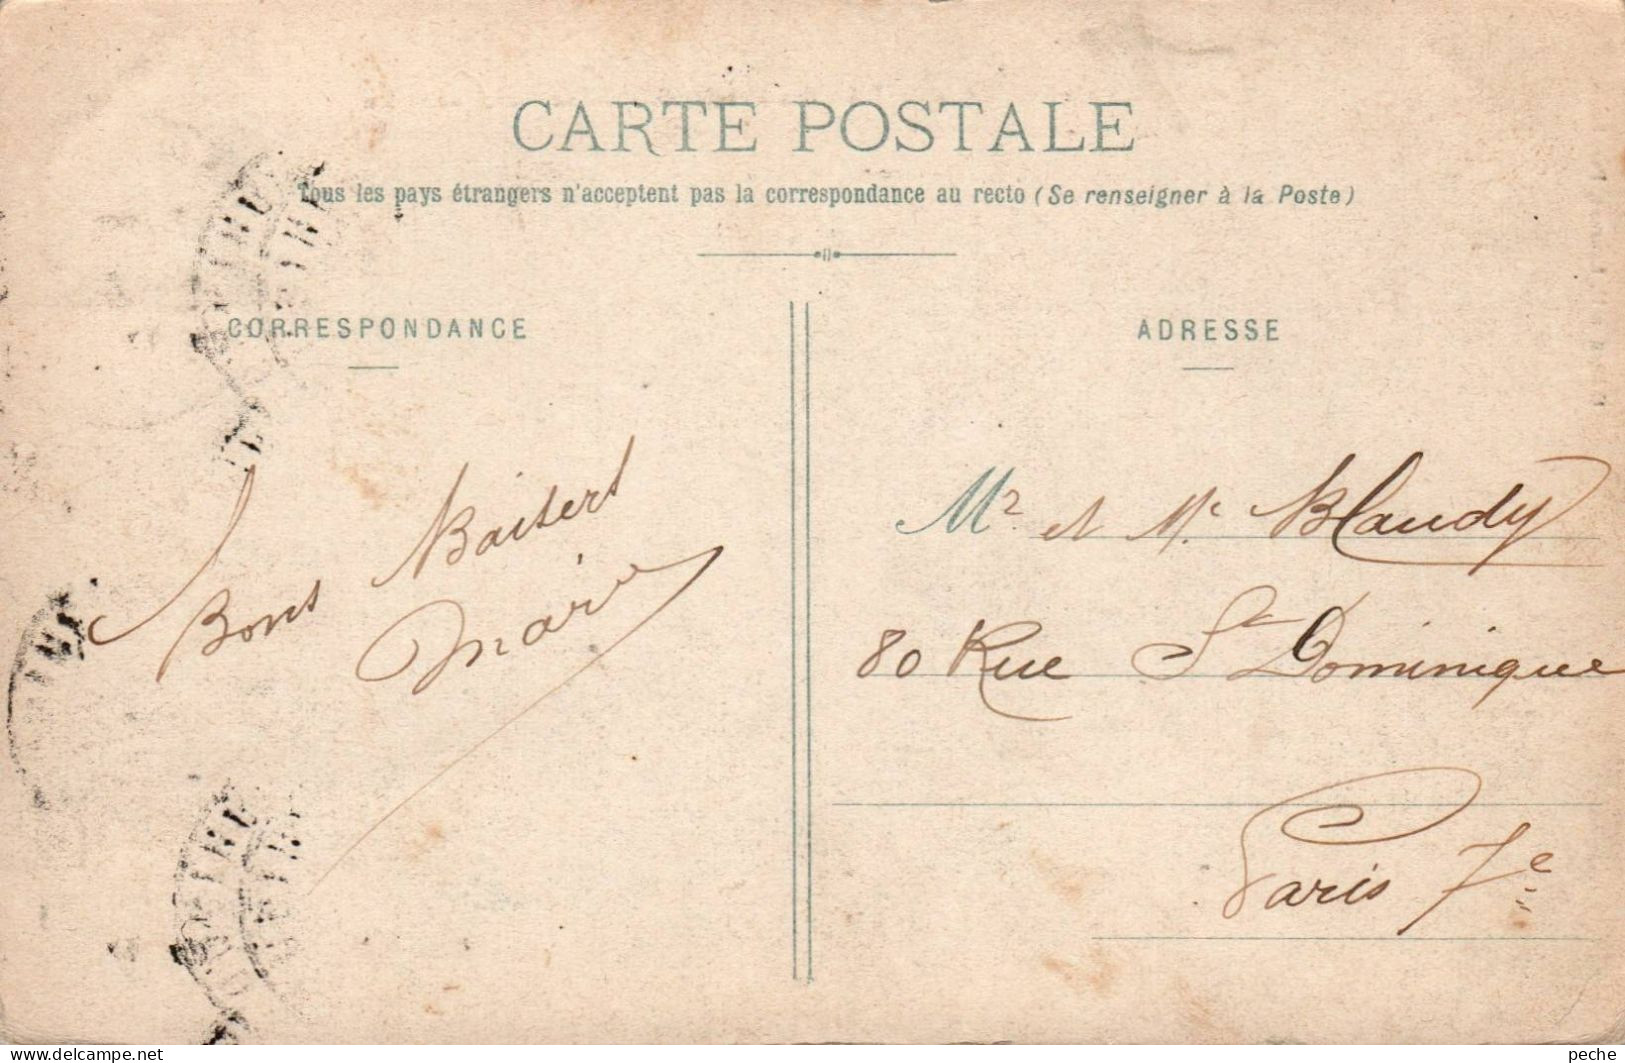 CARTE POSTALE
Tous les pays étrangers n'acceptent pas la correspondance au recto (Se renseigner à la Poste)
CORRESPONDANCE
ADRESSE
Bons Baisers
Marie
Mr et Me Blaudy
80 Rue St Dominique
Paris 7e
www.delcampe.net
peche